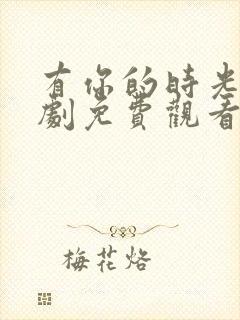 有你的時光
劇免費觀看
梅花烙